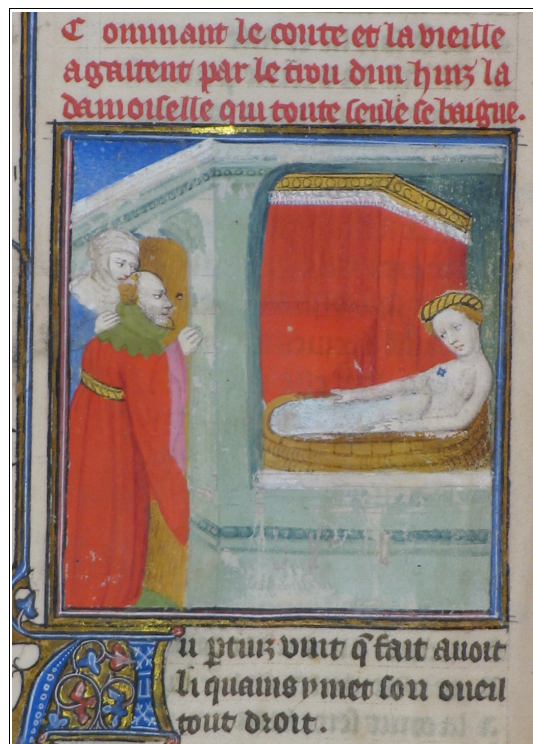 Commant le conte et la vieille
agaitent par le trou dun huiz la
damoiselle qui toute seule se baigne.
Au ptuiz vint q̃ fait auoit
li quains y met son oueil
tout droit.